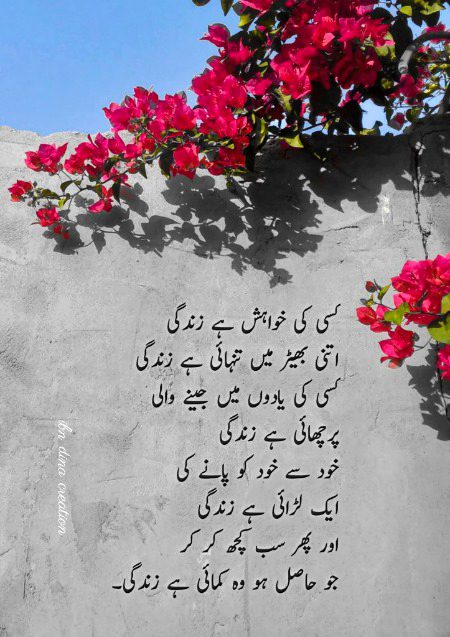 کسی کی خواہش ہے زندگی
اتنی بھیڑ میں تنہائی ہے زندگی
کسی کی یادوں میں جینے والی
پرچھائی ہے زندگی
خود سے خود کو پانے کی
ایک لڑائی ہے زندگی
اور پھر سب کچھ کر کر
جو حاصل ہو وہ کمائی ہے زندگی۔
ibn dina creation